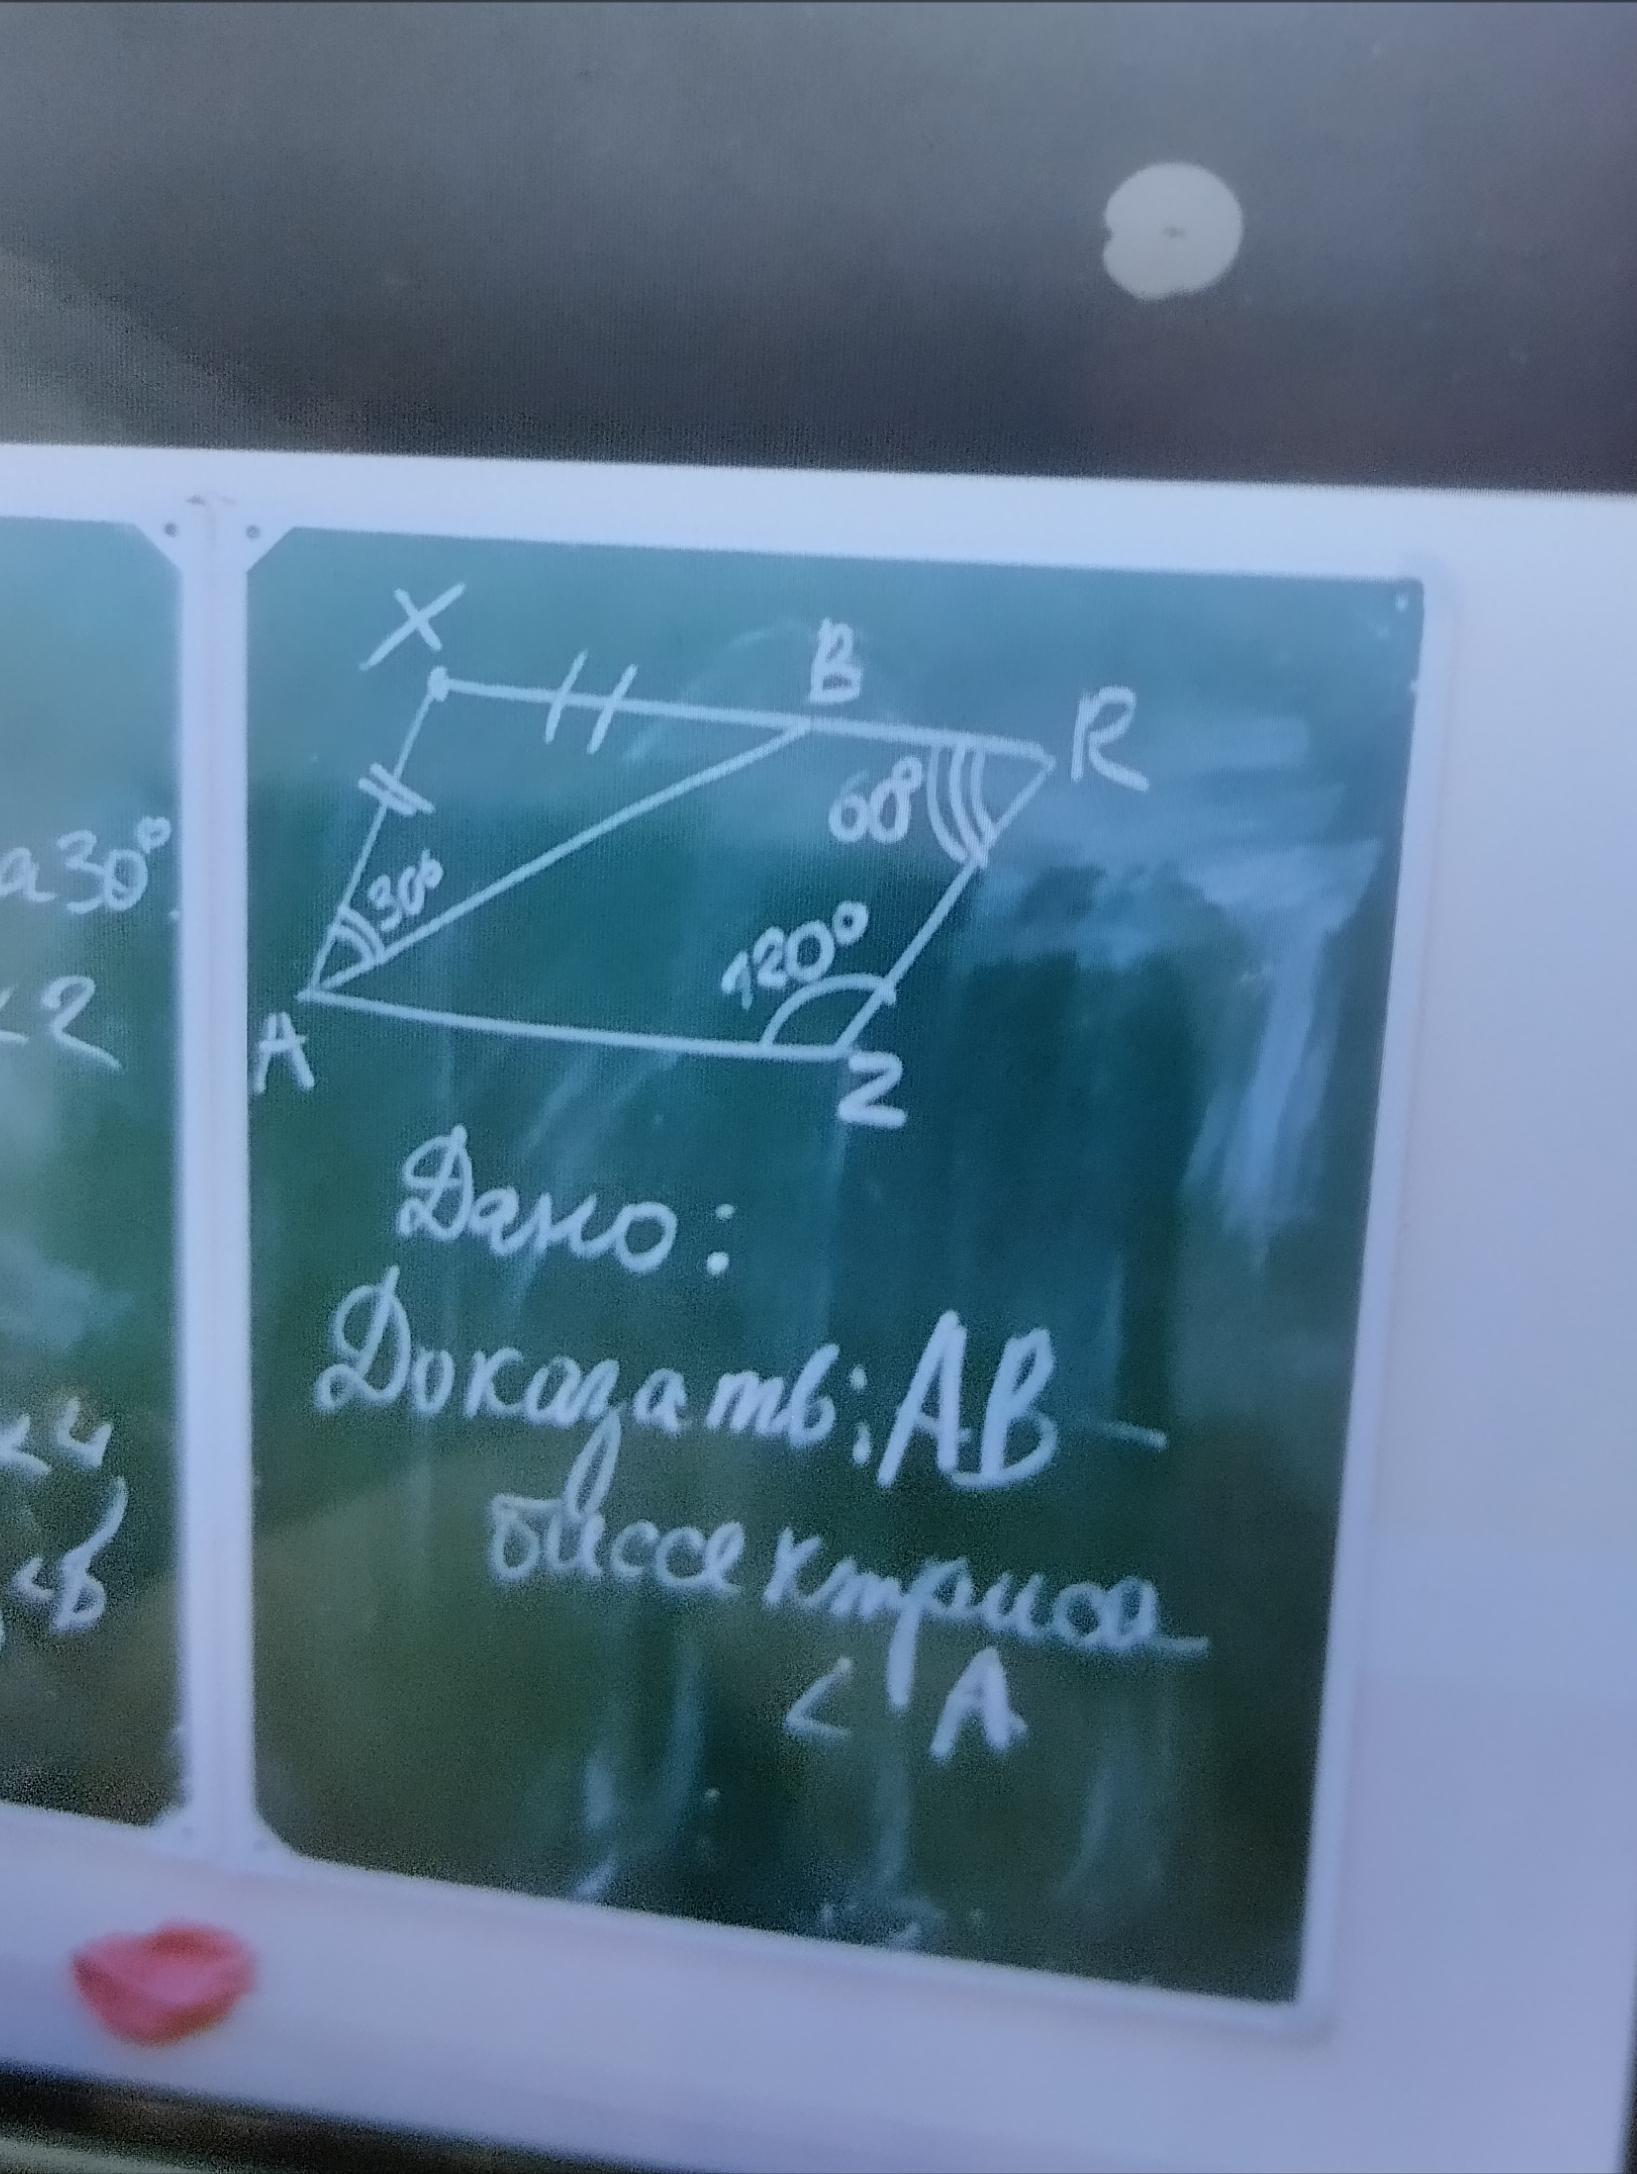 X
B
R
60°
30°
120°
A
Z
а 30°
<2
Дано:
Доказать: AB —
биссектриса
< A
<4